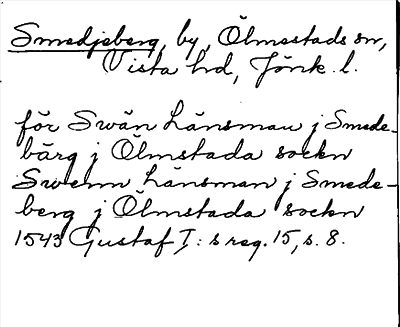 Smedjeberg, by, Ölmestads sn,
Vista hd, Jönk. l.
för Swän Länsman j Smede-
bärg j Ölmstada sockn
Swenn Länsman j Smede-
berg j Ölmstada sockn
1543 Gustaf I: s reg. 15, s. 8.